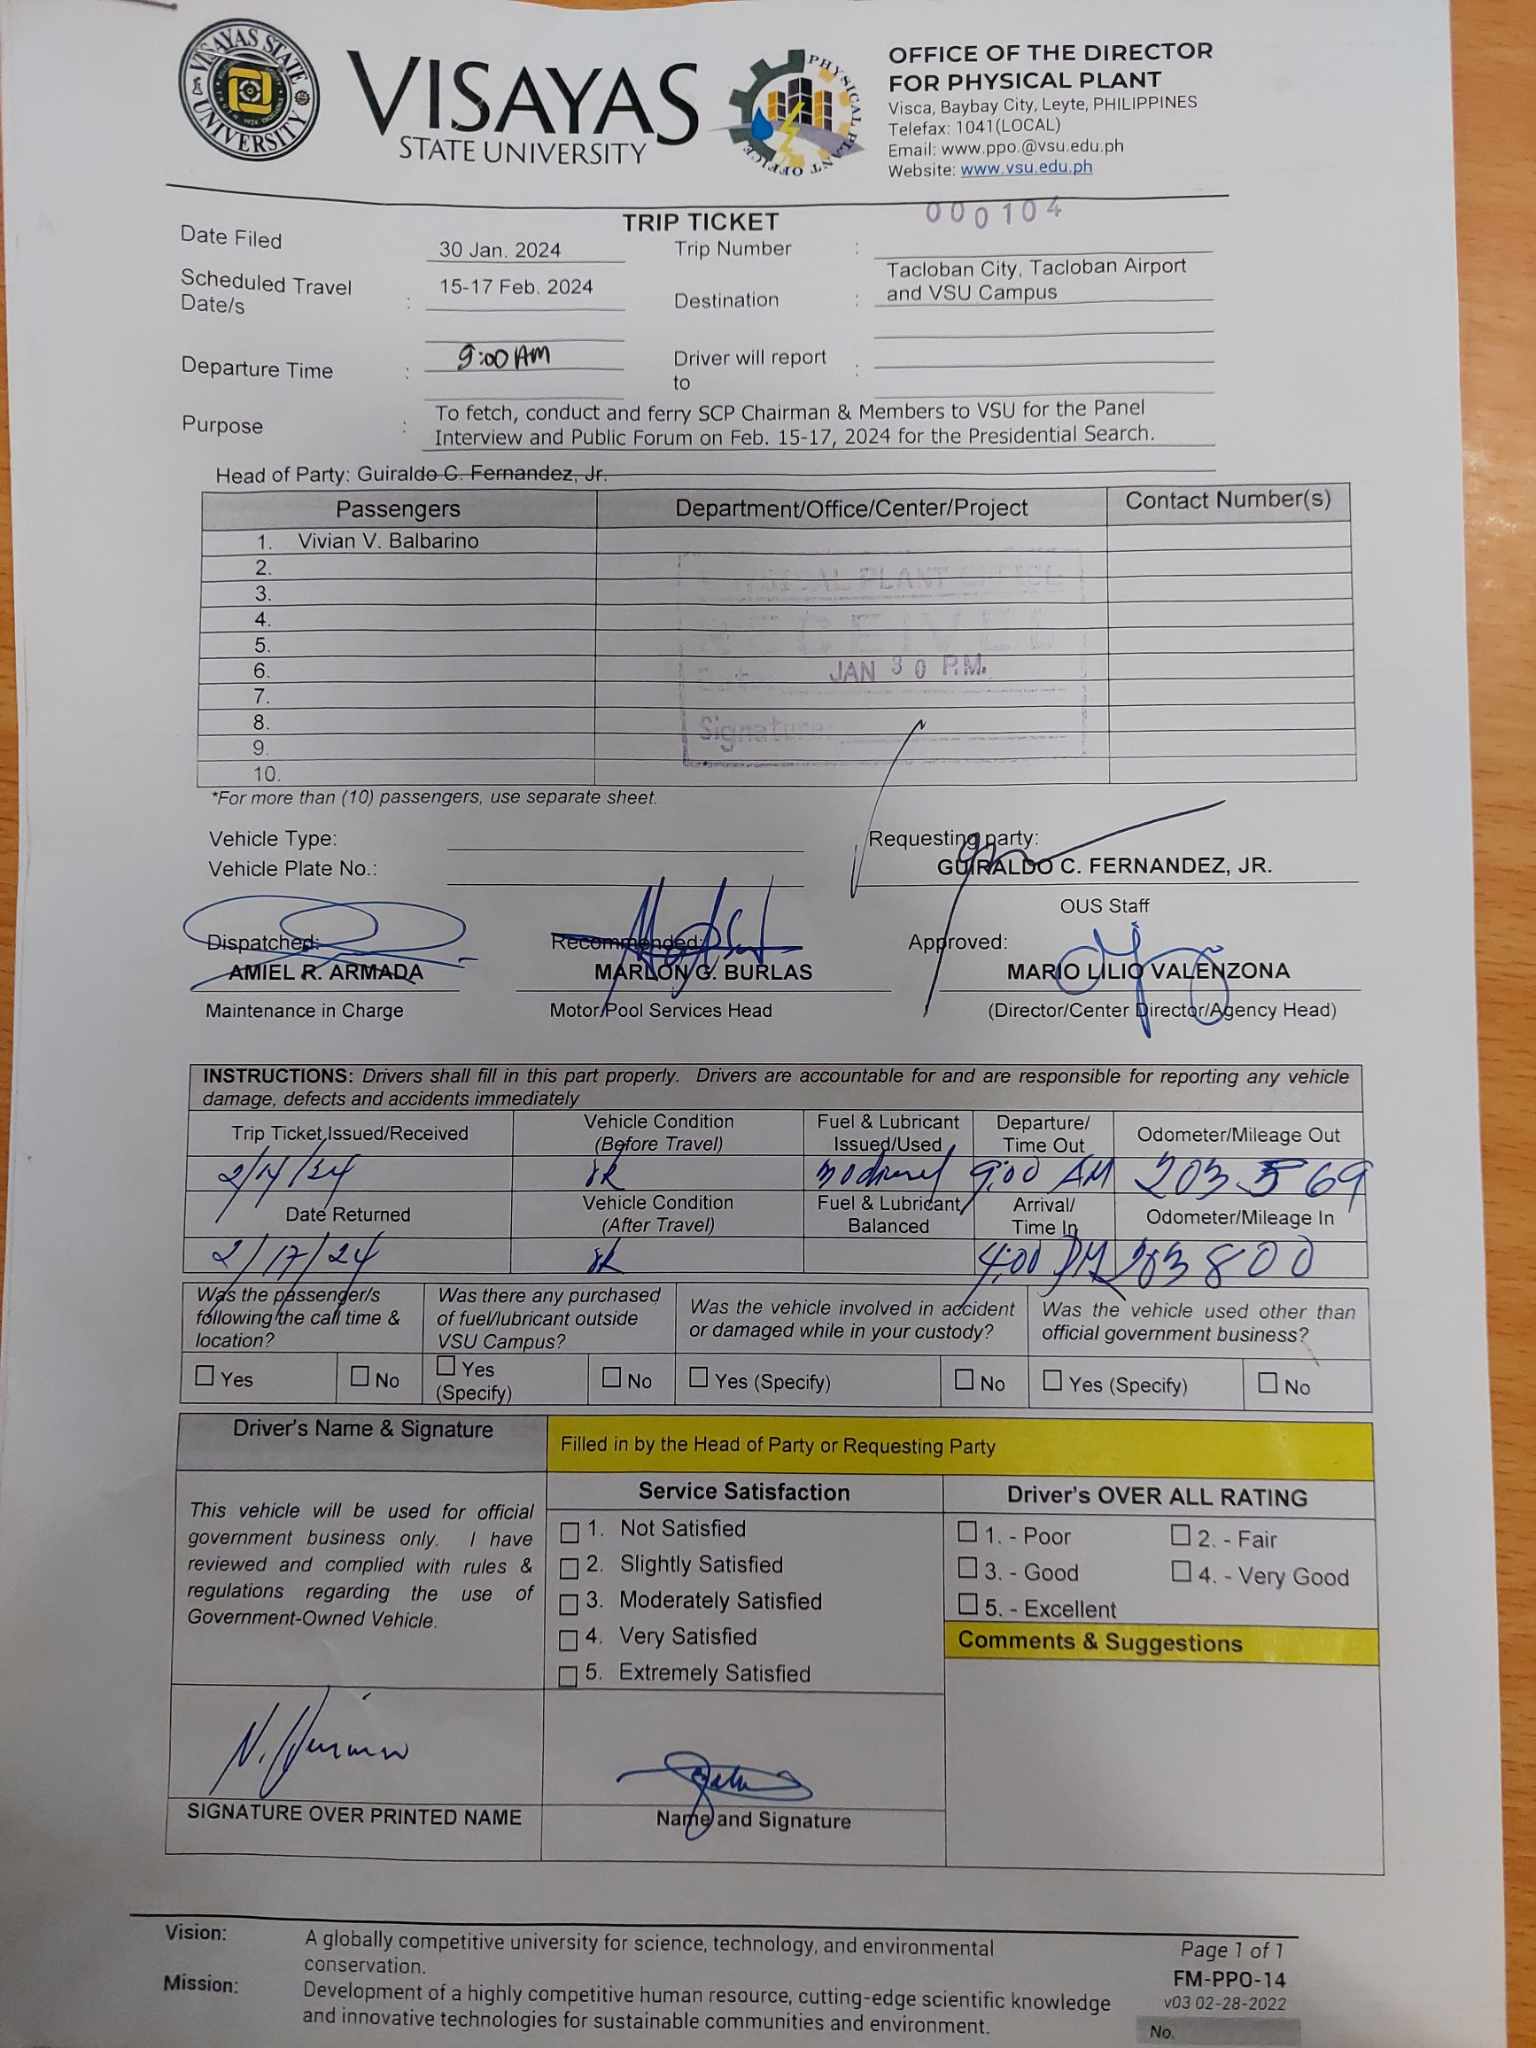 VISAYAS STATE UNIVERSITY
VISAYAS
STATE UNIVERSITY
PHYSICAL PLANT OFFICE
OFFICE OF THE DIRECTOR
FOR PHYSICAL PLANT
Visca, Baybay City, Leyte, PHILIPPINES
Telefax: 1041(LOCAL)
Email: www.ppo.@vsu.edu.ph
Website: www.vsu.edu.ph
TRIP TICKET
000104
Date Filed 30 Jan. 2024 Trip Number :
Scheduled Travel Date/s : 15-17 Feb. 2024 Destination : Tacloban City, Tacloban Airport
and VSU Campus
Departure Time : 9:00 AM Driver will report to :
Purpose : To fetch, conduct and ferry SCP Chairman & Members to VSU for the Panel
Interview and Public Forum on Feb. 15-17, 2024 for the Presidential Search.
Head of Party: Guiraldo C. Fernandez, Jr.
Passengers Department/Office/Center/Project Contact Number(s)
1. Vivian V. Balbarino
2.
3.
4.
5.
6.
7.
8.
9.
10.
PLANT OFFICE
RECEIVED
Date JAN 30 P.M.
Signature:
*For more than (10) passengers, use separate sheet.
Vehicle Type:
Vehicle Plate No.:
Requesting party:
GUIRALDO C. FERNANDEZ, JR.
OUS Staff
Dispatched: Recommended: Approved:
AMIEL R. ARMADA MARLON G. BURLAS MARIO LILIO VALENZONA
Maintenance in Charge Motor Pool Services Head (Director/Center Director/Agency Head)
INSTRUCTIONS: Drivers shall fill in this part properly. Drivers are accountable for and are responsible for reporting any vehicle
damage, defects and accidents immediately
Trip Ticket Issued/Received Vehicle Condition (Before Travel) Fuel & Lubricant Issued/Used Departure/ Time Out Odometer/Mileage Out
2/14/24 9:00 AM 203569
Date Returned Vehicle Condition (After Travel) Fuel & Lubricant Balanced Arrival/ Time In Odometer/Mileage In
2/17/24 4:00 PM 203800
Was the passenger/s following the call time & location? Was there any purchased of fuel/lubricant outside VSU Campus? Was the vehicle involved in accident or damaged while in your custody? Was the vehicle used other than official government business?
Yes No Yes (Specify) No Yes (Specify) No Yes (Specify) No
Driver's Name & Signature Filled in by the Head of Party or Requesting Party
This vehicle will be used for official
government business only. I have
reviewed and complied with rules &
regulations regarding the use of
Government-Owned Vehicle.
Service Satisfaction
1. Not Satisfied
2. Slightly Satisfied
3. Moderately Satisfied
4. Very Satisfied
5. Extremely Satisfied
Driver's OVER ALL RATING
1. - Poor 2. - Fair
3. - Good 4. - Very Good
5. - Excellent
Comments & Suggestions
SIGNATURE OVER PRINTED NAME Name and Signature
Vision: A globally competitive university for science, technology, and environmental
conservation.
Mission: Development of a highly competitive human resource, cutting-edge scientific knowledge
and innovative technologies for sustainable communities and environment.
Page 1 of 1
FM-PPO-14
v03 02-28-2022
No.